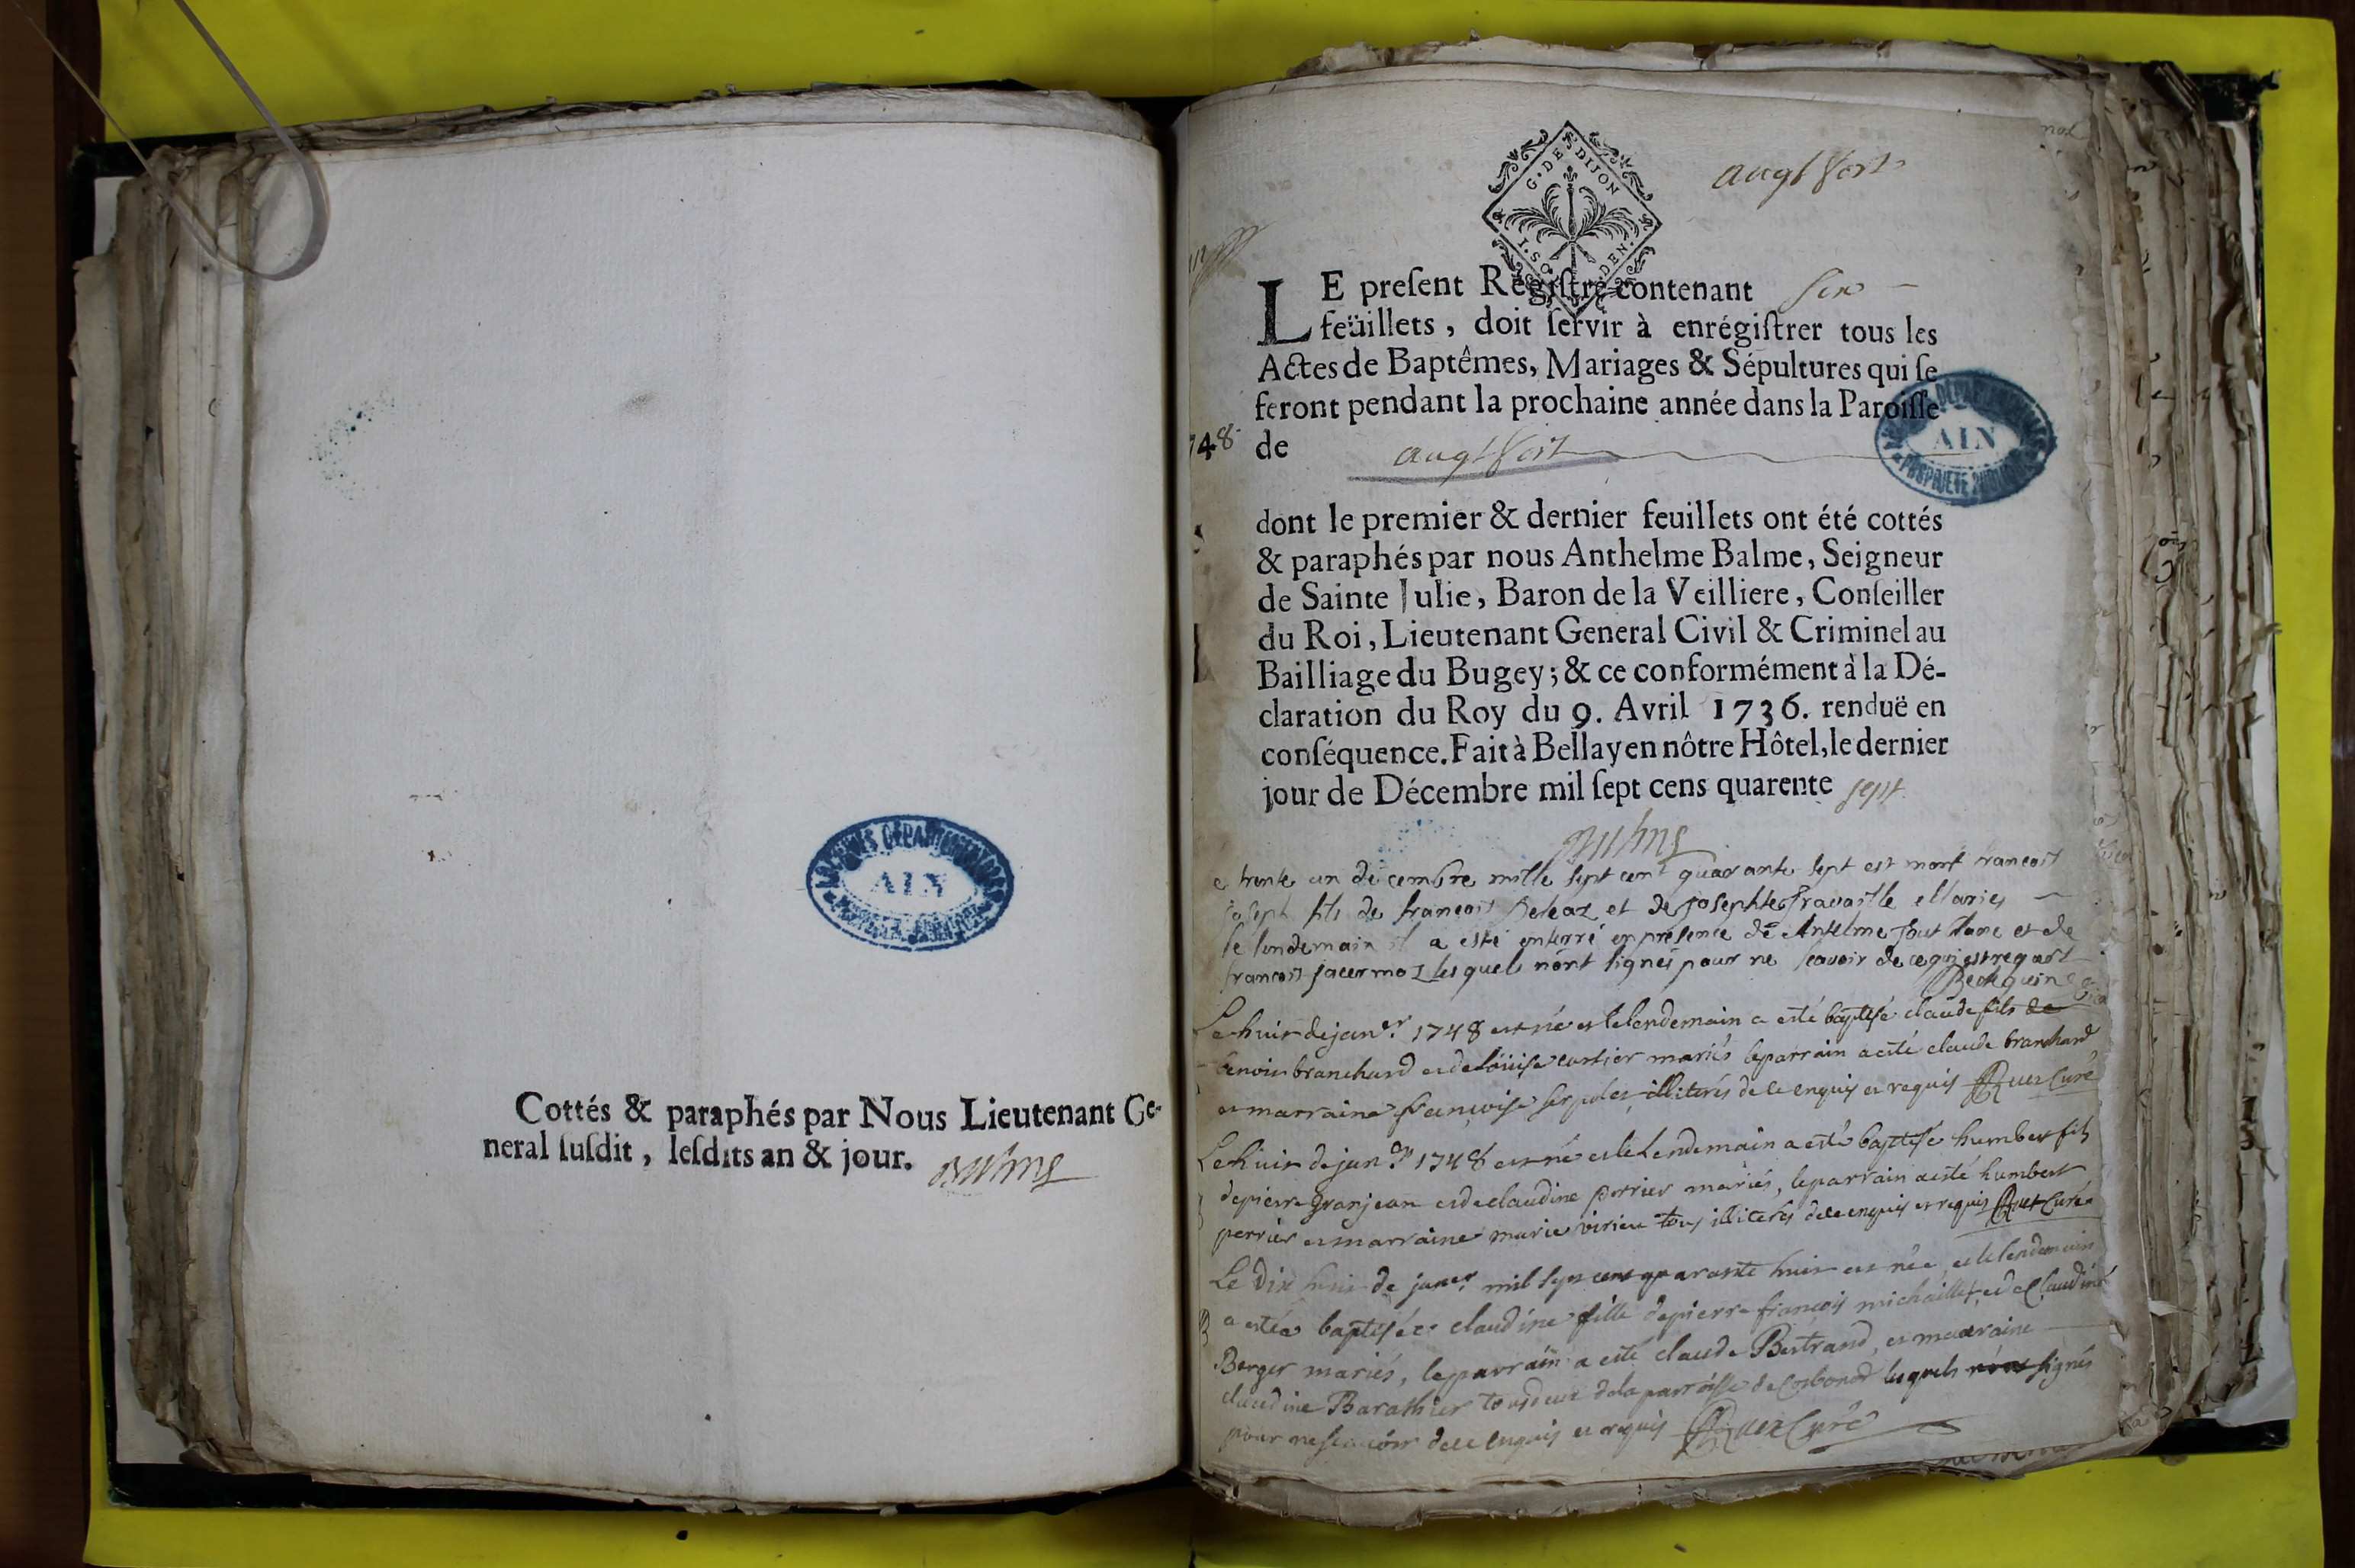 Cottés & paraphés par Nous Lieutenant Ge-
neral ſuſdit, leſdits an & jour.
G. DES DIJON
DEN.
1748
LE preſent Régiſtre contenant six
feüillets, doit ſervir à enrégiſtrer tous les
Actes de Baptêmes, Mariages & Sépultures qui ſe
feront pendant la prochaine année dans la Paroiſſe
de
AIN
dont le premier & dernier feuillets ont été cottés
& paraphés par nous Anthelme Balme, Seigneur
de Sainte Julie, Baron de la Veilliere, Conſeiller
du Roi, Lieutenant General Civil & Criminel au
Bailliage du Bugey; & ce conformément à la Dé-
claration du Roy du 9. Avril 1736. renduë en
conſéquence. Fait à Bellay en nôtre Hôtel, le dernier
jour de Décembre mil ſept cens quarente sept
trente un decembre mille sept cent quarante sept est mort francois
joseph fils de francois et de josephte maries
le lendemain il a esté enterré en présence de Antelme et de
francois jacermoz lesquels n'ont signés pour ne scavoir de ce
Le huit de janer 1748 est né et le lendemain a esté baptisé claude fils de
benoit branchard et de loüise mariés le parrain a esté claude branchard
et marraine françoise illiterés de ce enquis et requis Curé
Le huit de janer 1748 est né et le lendemain a esté baptisé humbert fils
de pierre granjean et de claudine perrier mariés, le parrain a esté humbert
perrier et marraine marie virieu tous illiterés de ce enquis et requis Curé
Le dix huit de janer mil sept cent quarante huit est née et le lendemain
a estée baptisée claudine fille de pierre françois michaillet et de claudine
Berger mariés, le parrain a esté claude Bertrand, et marraine
claudine Barathier tous deux de la parroisse de Corbonod lesquels signés
pour ne scavoir de ce enquis et requis Curé
AIN